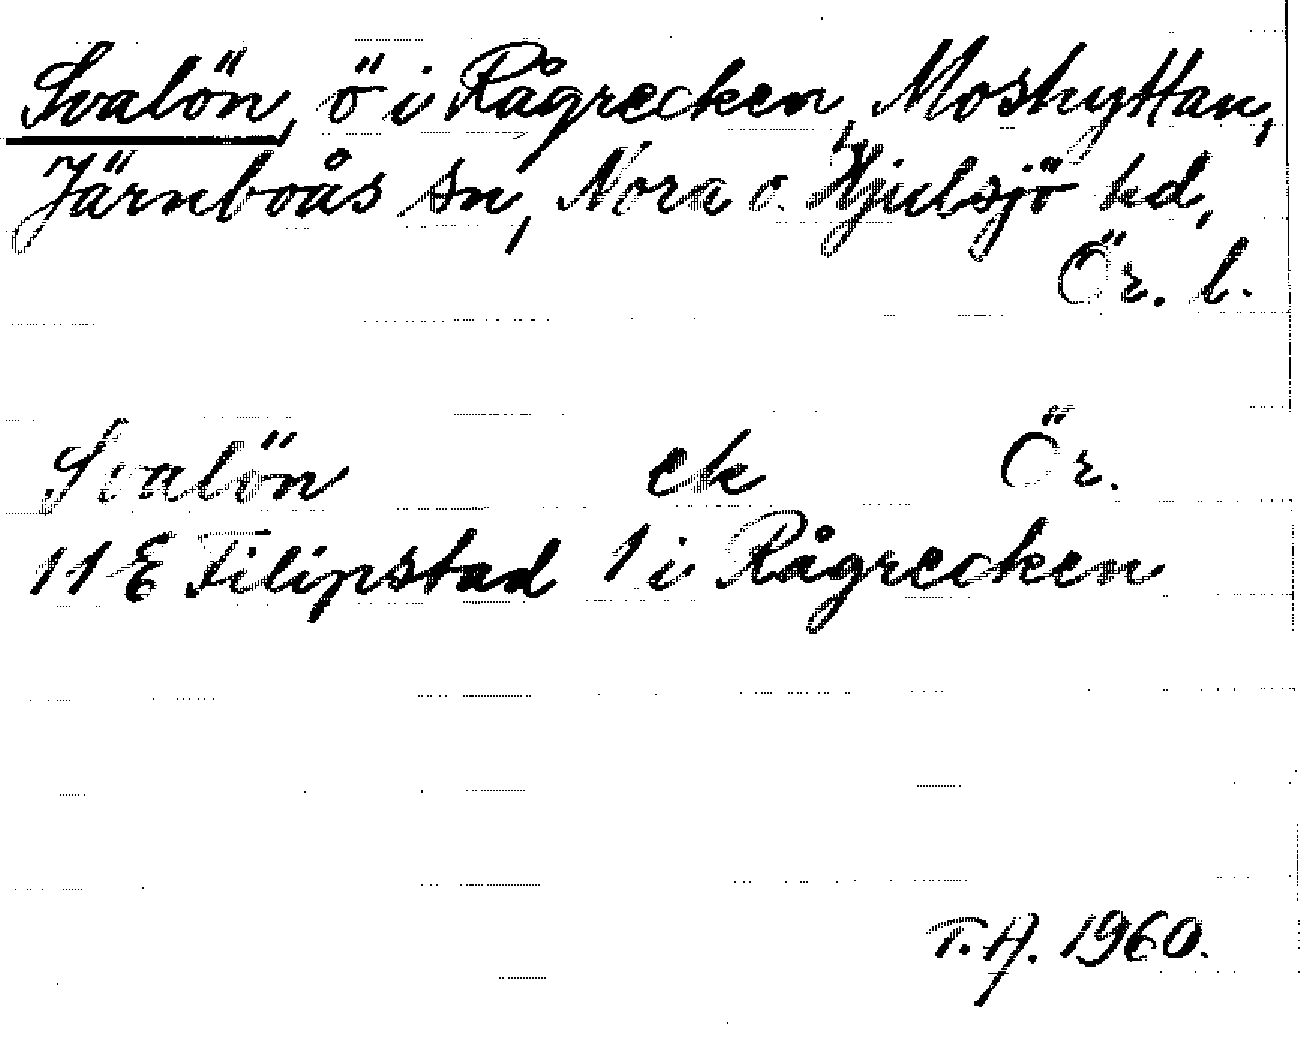 Svalön, ö i Rågrecken, Moshyttan,
Järnboås sn, Nora o. Hjulsjö hd,
Ör. l.
Svalön ek Ör.
11 E Filipstad 1 i Rågrecken
T.A. 1960.